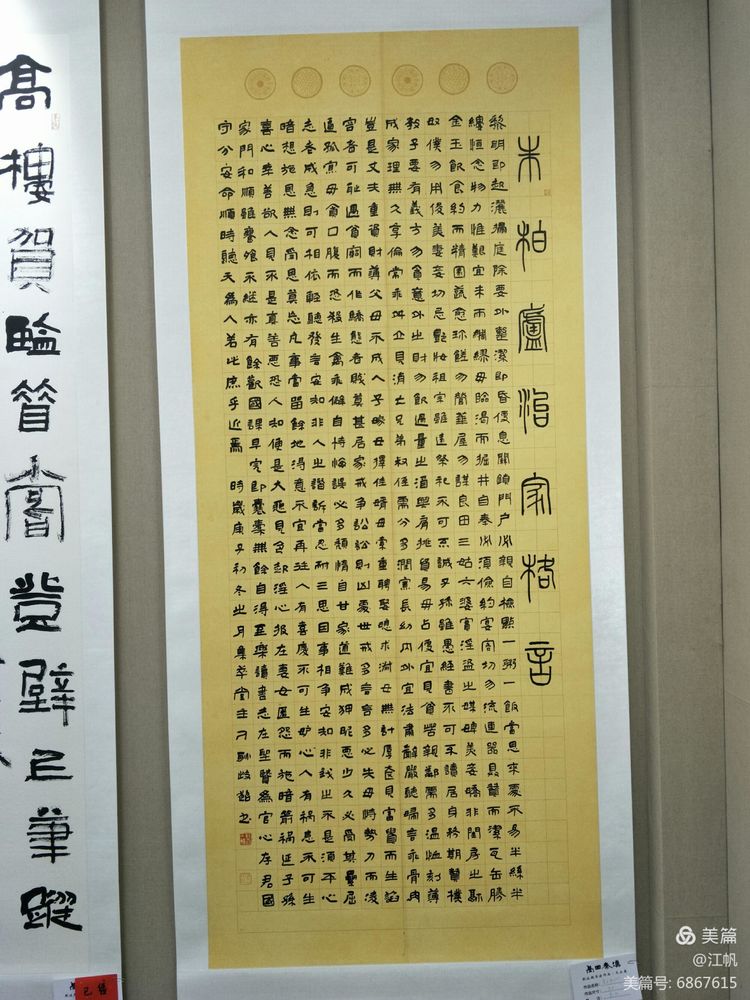 朱柏廬治家格言
黎明即起灑掃庭除要外整潔即昏便息關鎖門戶必親自檢點一粥一飯當思來處不易半絲半
縷恒念物力惟艱宜未雨綢繆毋臨渴而掘井自奉必須儉約宴客切勿流連器具質而潔瓦缶勝
金玉飲食約而精園蔬愈珍饈勿營華屋勿謀良田三姑六婆實淫盜之媒婢美妾嬌非閨房之福
奴僕勿用俊美妻妾切忌艷妝祖宗雖遠祭祀不可不誠子孫雖愚經書不可不讀居身務期質樸
教子要有義方勿貪意外之財勿飲過量之酒與肩挑貿易毋占便宜見貧苦親鄰需多溫恤刻薄
成家理無久享倫常乖舛立見消亡兄弟叔侄需分多潤寡長幼內外宜法肅辭嚴聽婦言乖骨肉
豈是丈夫重資財薄父母不成人子嫁女擇佳婿毋索重聘娶媳求淑女毋計厚奩見富貴而生諂
容者可恥遇貧窮而作驕態者賤莫甚居家戒爭訟訟則凶處世戒多言言多必失毋恃勢力而凌
逼孤寡毋貪口腹而恣殺生禽乖僻自恃悔誤必多頹惰自甘家道難成狎昵惡少久必受其累屈
志老成急則可相依輕聽發言安知非人之譖訴當忍耐三思因事相爭安知非我之不是須平心
暗想施恩無念受恩莫忘凡事當留餘地得意不宜再往人有喜慶不可生妒心人有禍患不可生
喜心善欲人見不是真善惡恐人知便是大惡見色起淫心報在妻女匿怨而施暗箭禍延子孫
家門和順雖饔飧不繼亦有餘歡國課早完即囊橐無餘自得至樂讀書志在聖賢為官心存君國
守分安命順時聽天為人若此庶乎近焉 時歲庚子初冬之月
高樓賀 登壁已筆蹤
已售
美篇
@江帆
美篇号: 6867615